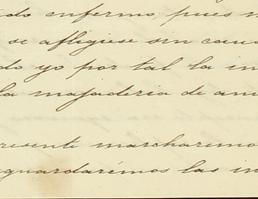 do enfermo, pues
se afligiese sin
do yo por tal la in
la majaderia de
resente marcharemo
guardarémos las in